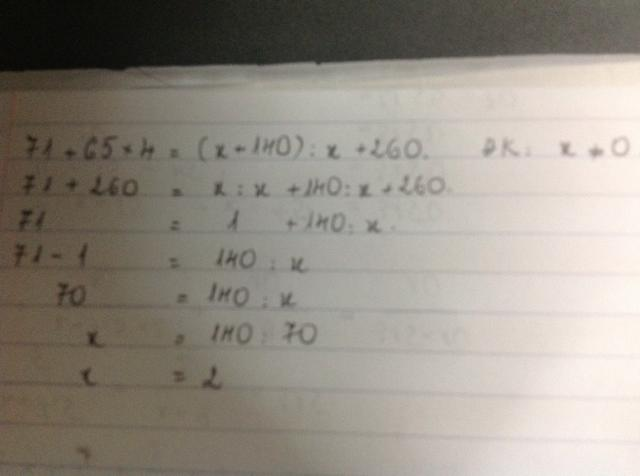 71 + 65 × 4 = (x + 140) : x + 260. ĐK: x ≠ 0
71 + 260 = x : x + 140 : x + 260.
71 = 1 + 140 : x.
71 - 1 = 140 : x
70 = 140 : x
x = 140 : 70
x = 2